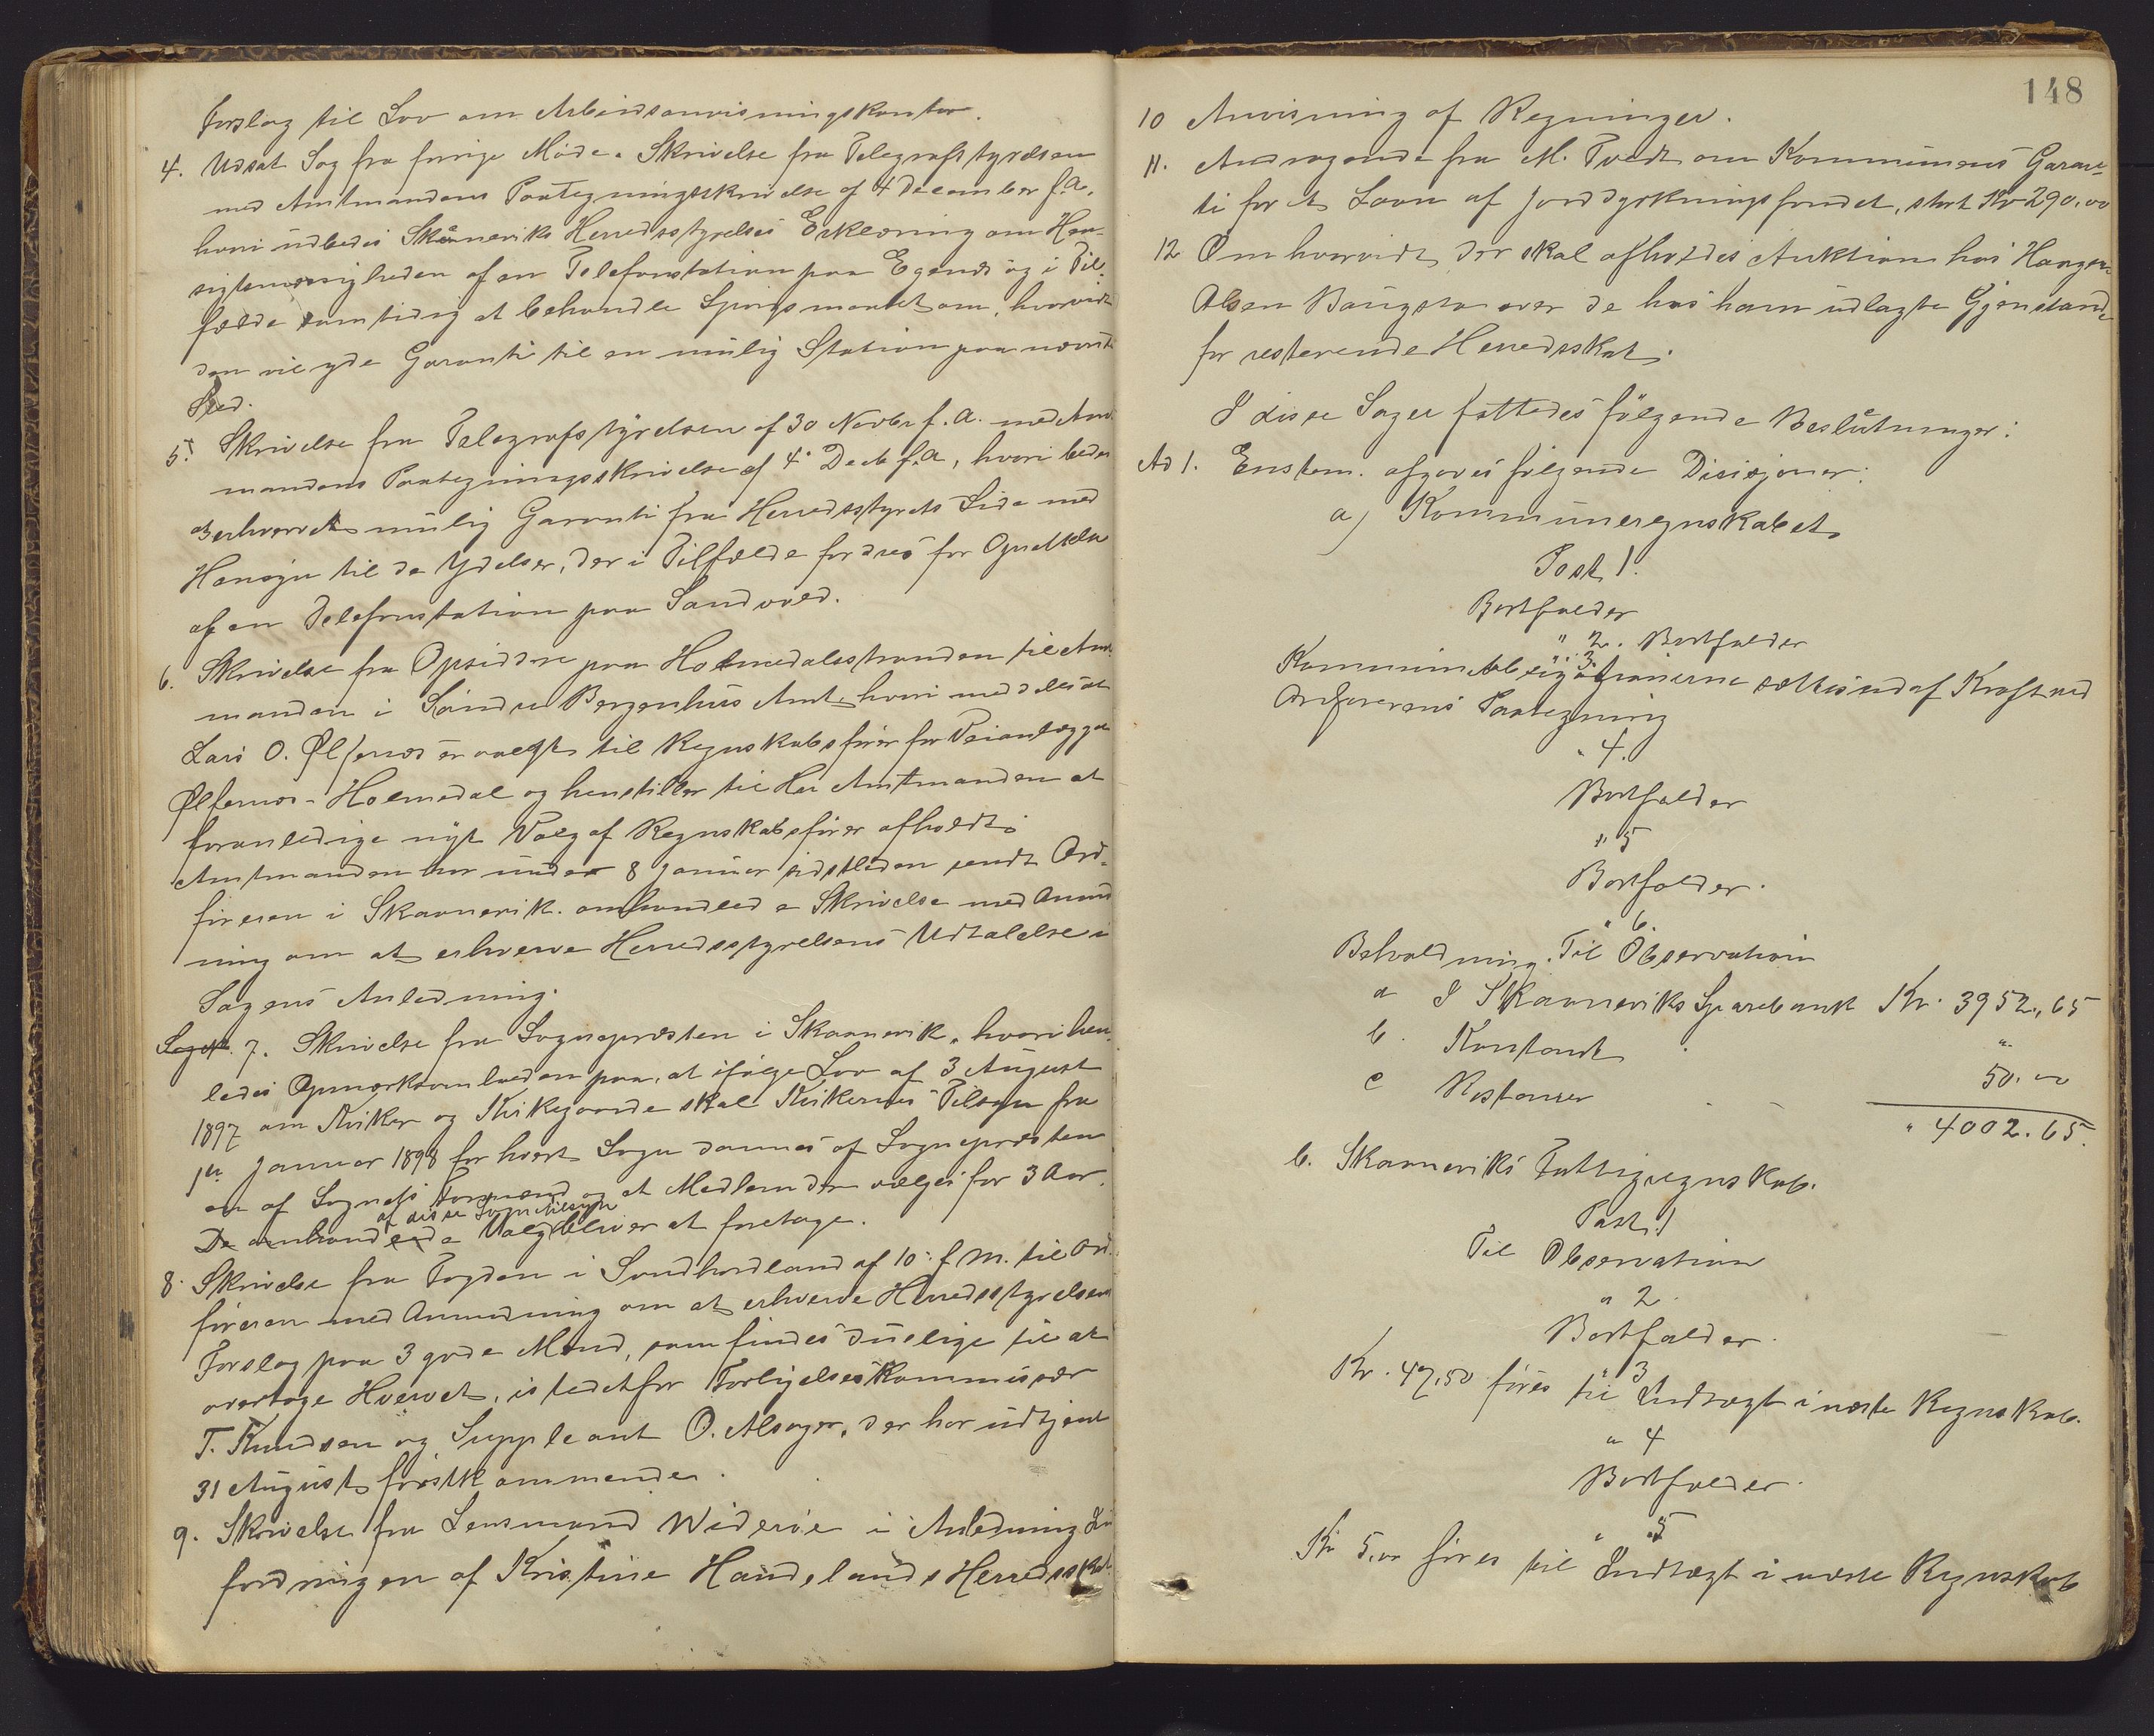 Forslag til Lov om Arbeidsanvisningskontor.
4. Udsat Sag fra forrige Møde. Skrivelse fra Telegrafstyrelsen
med Amtmandens Paategningsskrivelse af 4 December f.A.
hvori udbedes Skånevriks Herredsstyrelses Erklæring om Hen-
sigtsmæssigheden af en Telefonstation paa Egenæs og i Til-
fælde samtidig at behandle Spørgsmaalet om, hvorvidt
den vil yde Garanti til en mulig Station paa nævnte
Sted.
5. Skrivelse fra Telegrafstyrelsen af 30 Novbr f.A. med Amt-
mandens Paategningsskrivelse af 4' Decb f.A, hvori bedes
erhvervet mulig Garanti fra Herredsstyrets Side med
Hensyn til de Ydelser, der i Tilfælde fordres for Oprettelse
af en Telefonstation paa Sandvold.
6. Skrivelse fra Opsiddere paa Holmedalsstranden til Amt-
manden i Søndre Bergenhus Amt, hvori meddeles at
Lars O. Ølfernes er valgt til Regnskabsfører for Veianlægget
Ølfernes - Holmedal og henstiller til Hr Amtmanden at
foranledige nyt Valg af Regnskabsfører afholdt.
Amtmanden har under 8 Januar sidstleden sendt Ord-
føreren i Skaanevik omhandlede Skrivelse med Anmod
ning om at erhverve Herredsstyrelsens Udtalelse i
Sagens Anledning.
7. Skrivelse fra Sognepræsten i Skaanevik, hvori hen-
ledes Opmærksomheden paa, at ifølge Lov af 3 August
1897 om Kirker og Kirkegaarde skal Kirkernes Tilsyn fra
1ste Januar 1898 for hvert Sogn dannes af Sognepræsten
en af Sognets Formænd og et Medlem der vælges for 3 Aar.
af disse Sognetilsyn
De omhandlede Valg bliver at foretage.
8. Skrivelse fra Fogden i Søndhordland af 10' f. M. til Ord-
føreren med Anmodning om at erhverve Herredsstyrelsens
Forslag paa 3 gode Mænd, som findes duelige til at
overtage Hvervet, istedetfor Forligelseskommissær
T. Knudsen og Suppleant O. Alsager, der har udtjent
31 August førstkommende.
9. Skrivelse fra Lensmand Widerøe i Anledning In
fordringen af Kristine Haugelands Herredsskat.
148
10 Anvisning af Regninger.
11. Andragende fra M. Tvedt om Kommunens Garan-
ti for et Laan af Jorddyrkningsfondet, stort Kr 290,00
12 Om hvorvidt der skal afholdes Auktion hos Haagen
Olsen Baugstø over de hos ham udlagte Gjenstande
for resterende Herredsskat.
I disse Sager fattedes følgende Beslutninger:
Ad 1. Enstem. afgaves følgende Desisjoner:
a) Kommuneregnskabet
Post 1.
Bortfalder
" 2. Bortfalder
" 3.
Kommuneobligationerne sættes ud af Kraft ved
Ordførerens Paategning
" 4.
Bortfalder
" 5
Bortfalder.
" 6.
Beholdning. Til Observation
a I Skaaneviks Sparebank Kr. 3952,65
b. Kontant . "
c Restanser - - 50.00
" 4002.65.
b. Skaaneviks Fattigregnskab.
Post 1
Til Observation
" 2.
Bortfalder.
" 3
Kr. 47,50 føres til Indtægt i næste Regnskab.
" 4
Bortfalder.
" 5
Kr 5,00 føres til Indtægt i næste Regnskab